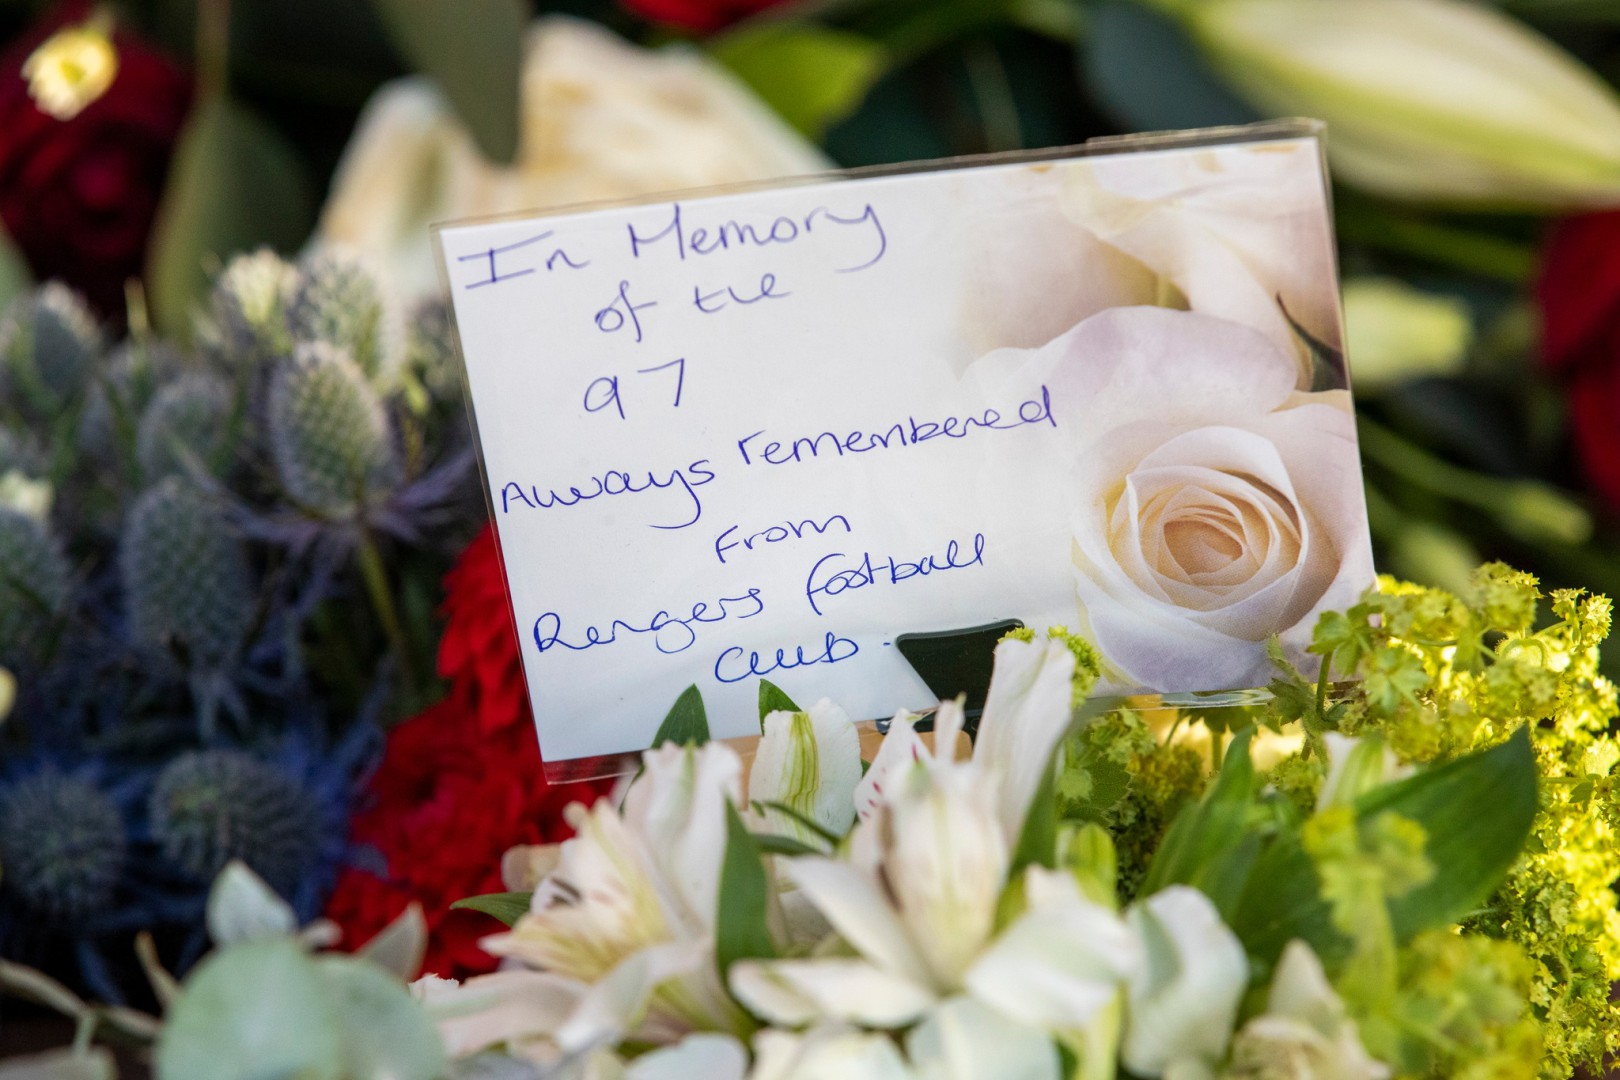 In Memory
of the
97
Always remembered
From
Rangers football
Club.